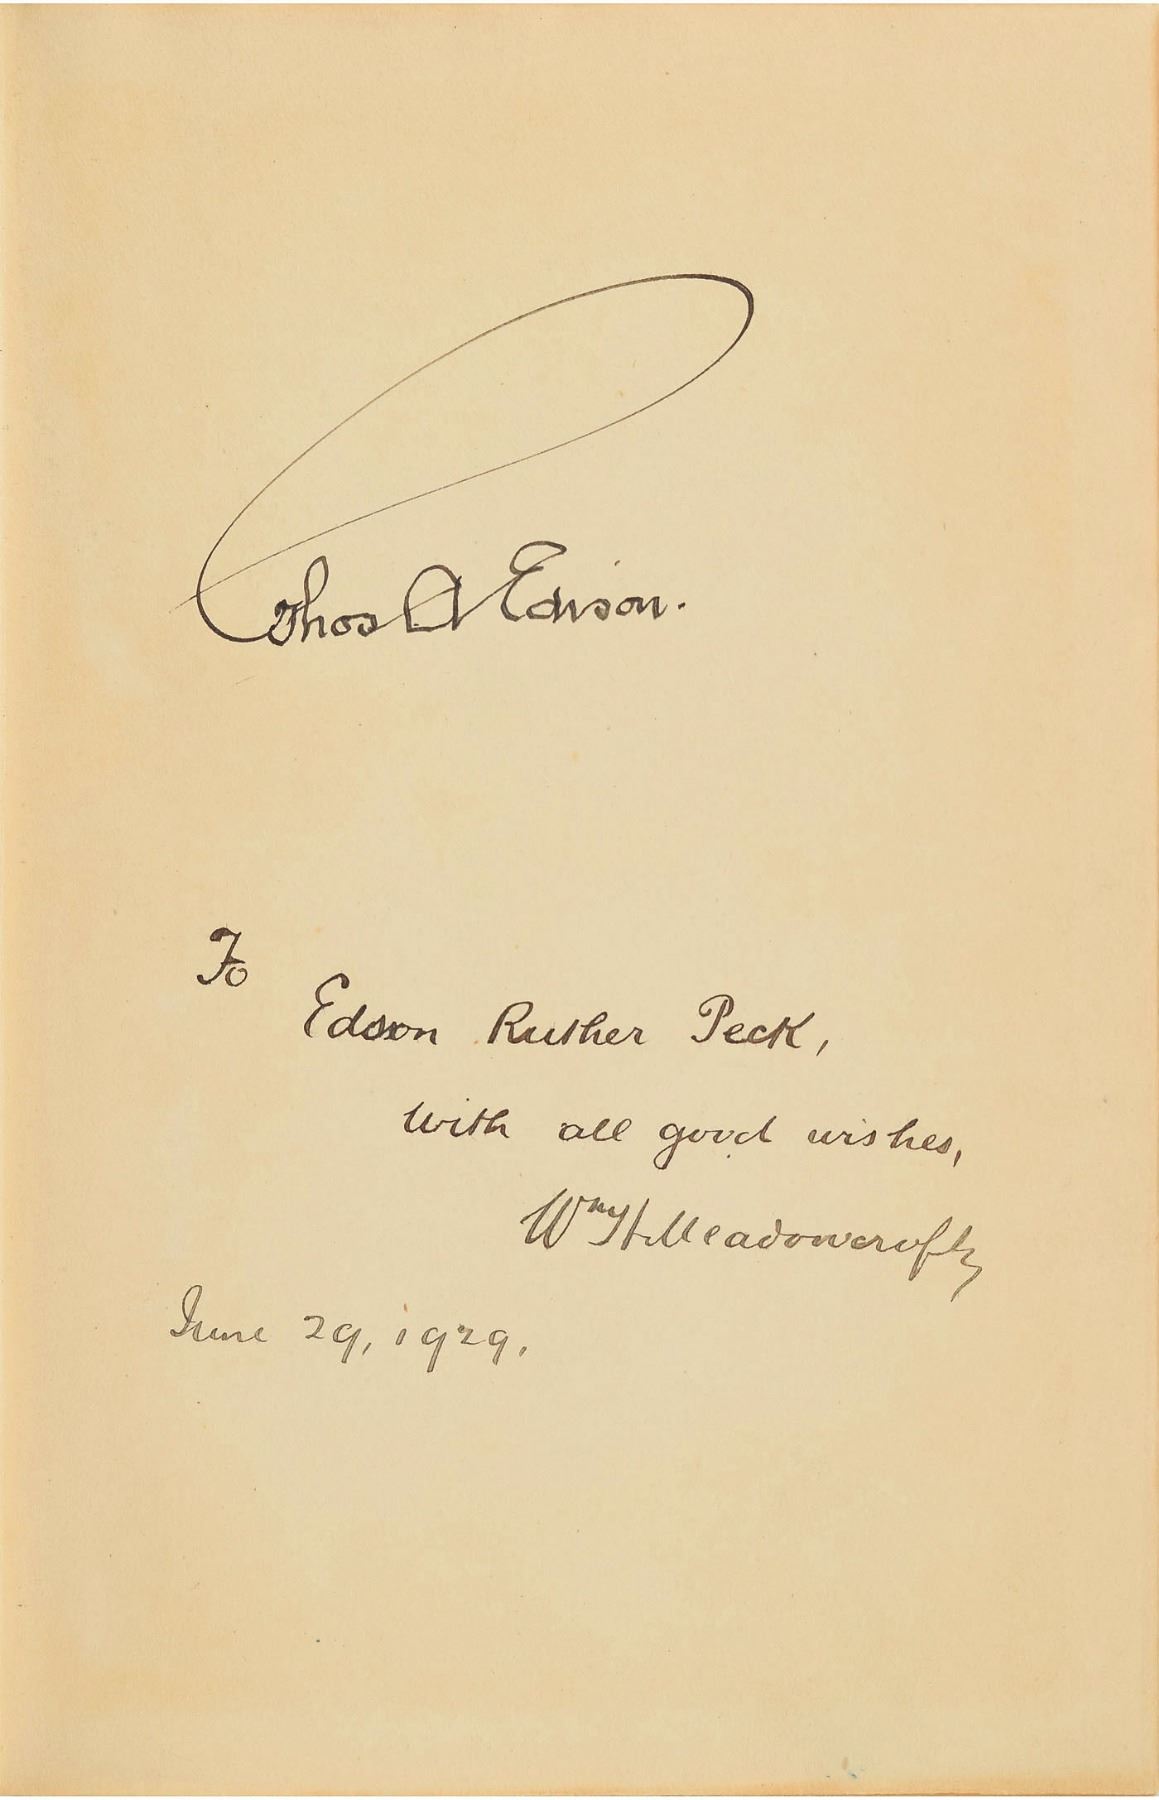 Thos A Edison.
To
Edson Ruther Peck,
with all good wishes,
Wm H. Meadowcroft
June 29, 1929.